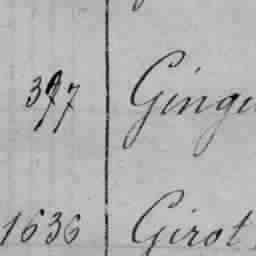 397 Gingu
1636 Girot